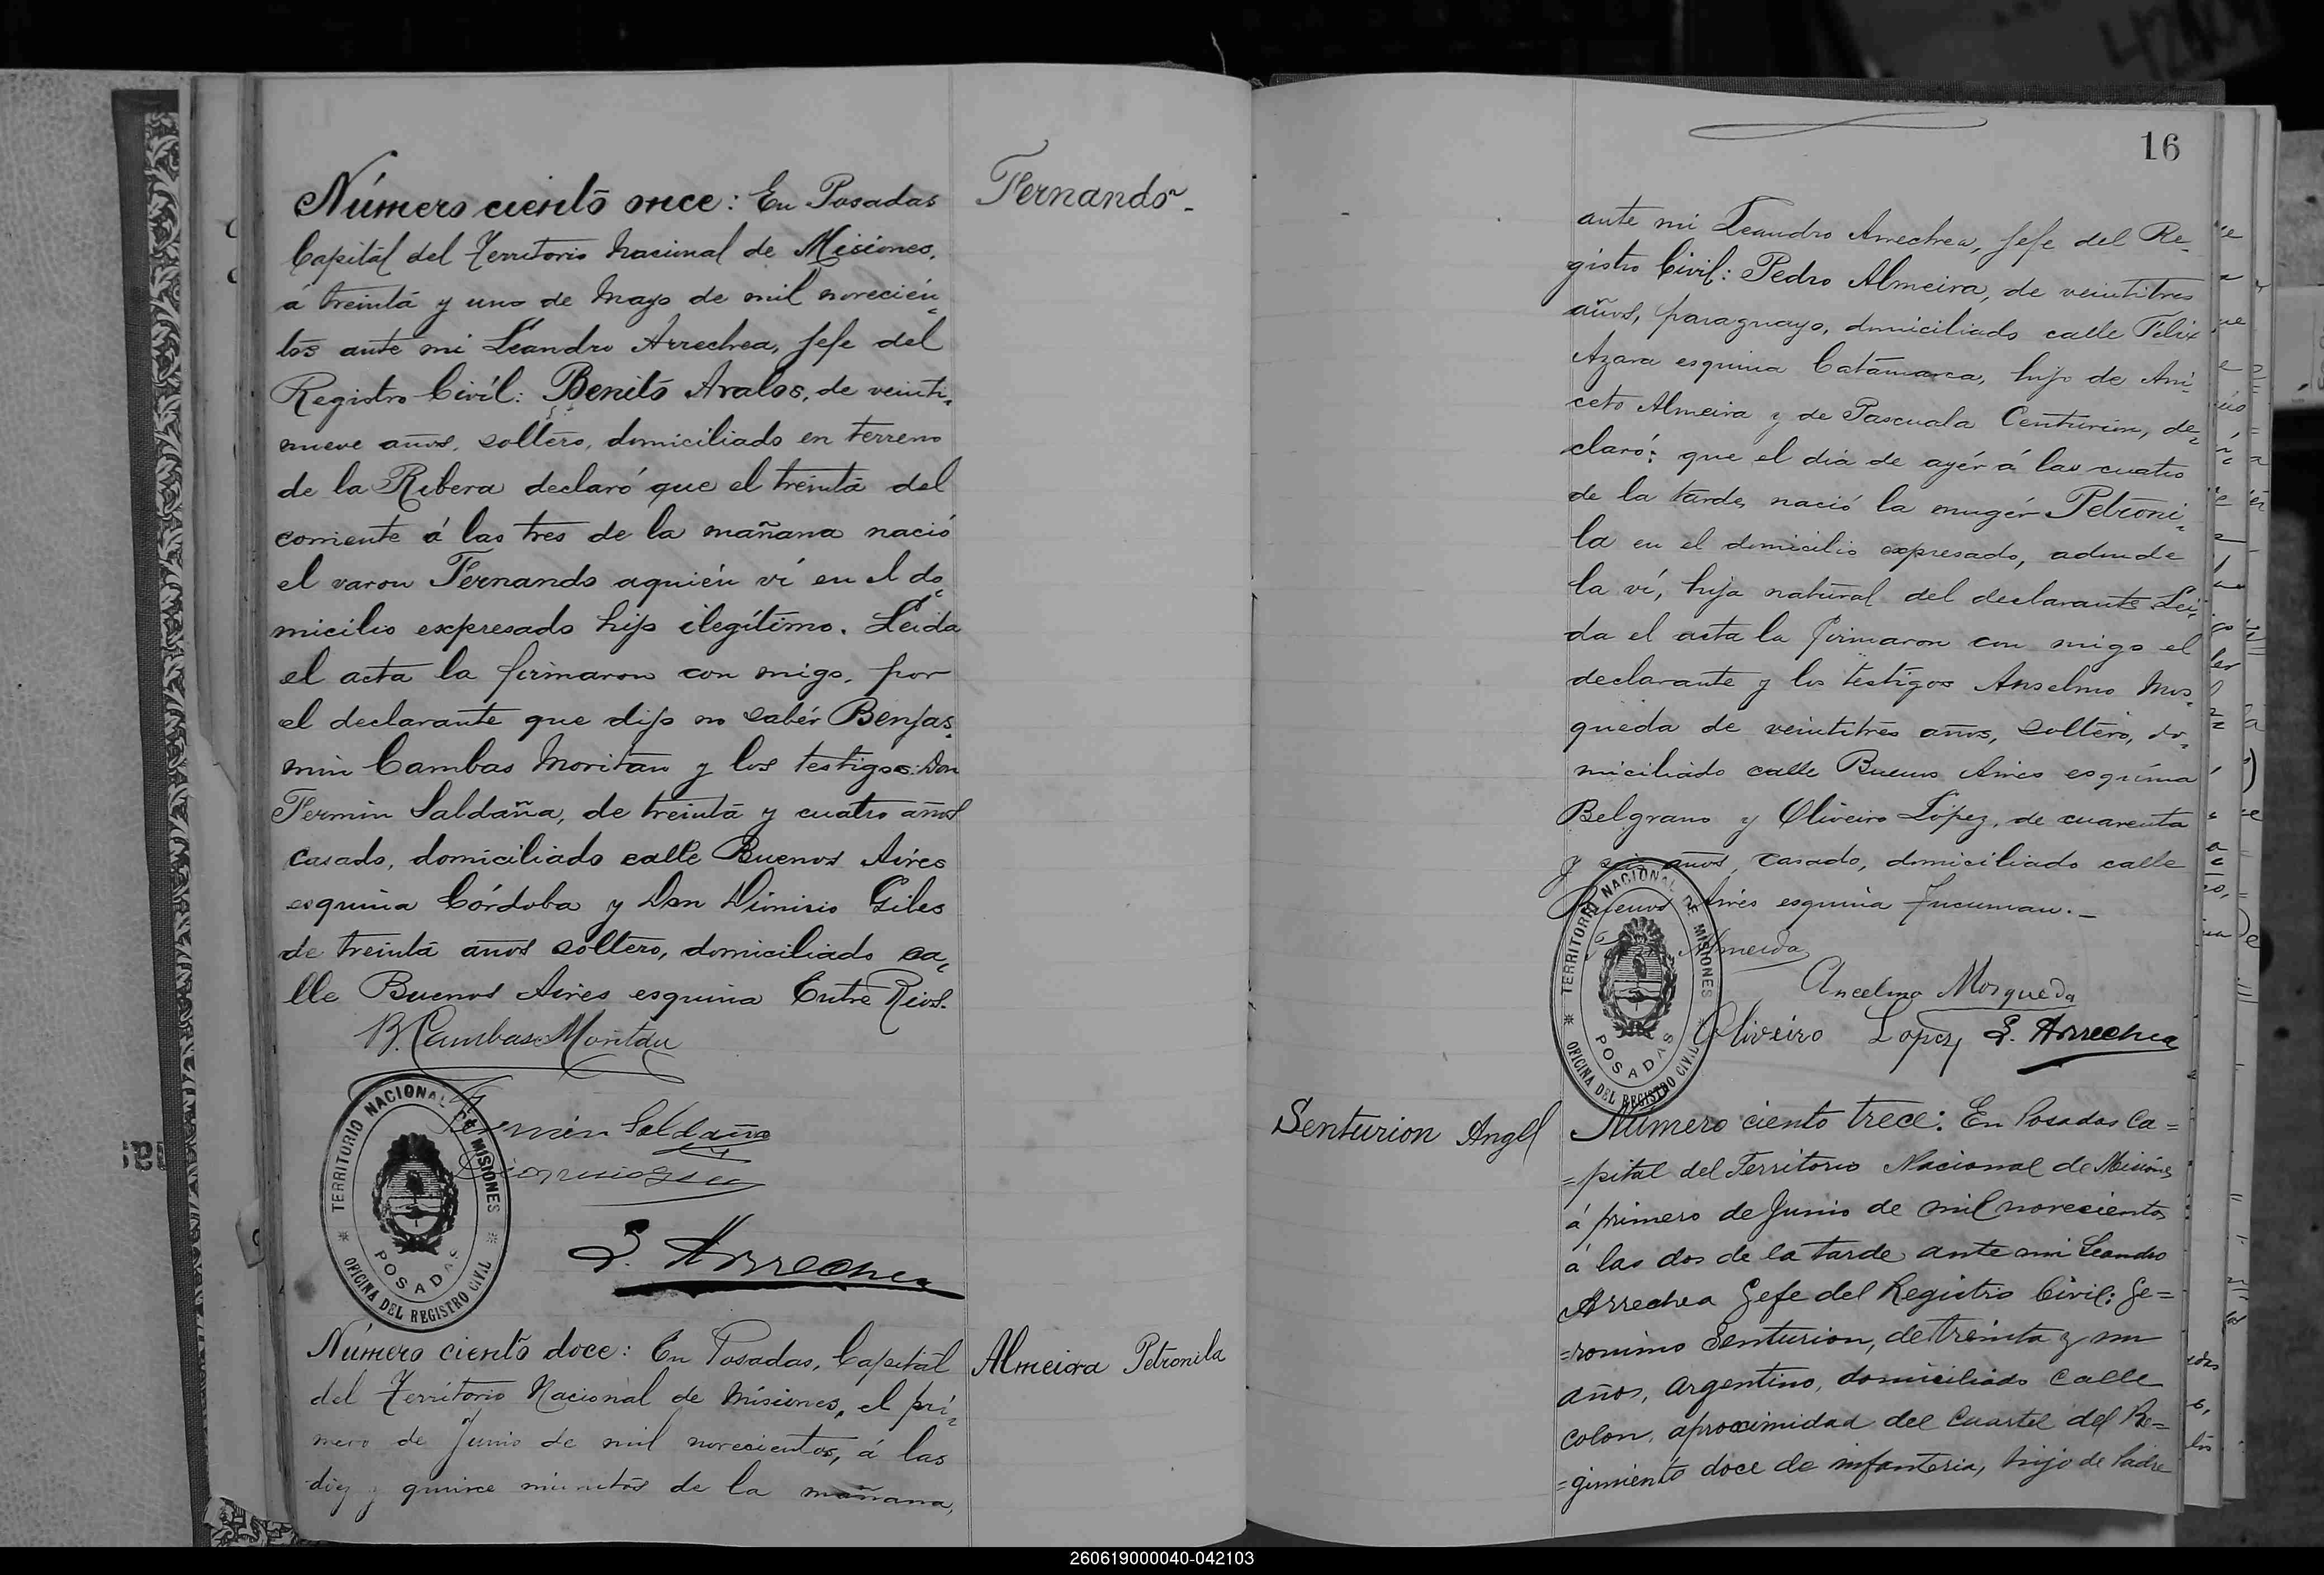 Número ciento once: En Posadas
Capital del Territorio Nacional de Misiones,
á treinta y uno de Mayo de mil novecien-
tos ante mi Leandro Arrechea, Jefe del
Registro Civíl: Benito Avalos, de veinti-
nueve años, soltero, domiciliado en terreno
de la Ribera declaró que el treinta del
corriente á las tres de la mañana nació
el varon Fernando aquién ví en el do-
micilio expresado hijo ilegítimo. Leida
el acta la firmaron con migo, por
el declarante que dijo no sabér Benja-
min Cambas Moritan y los testigos: Don
Fermin Saldaña, de treinta y cuatro años
casado, domiciliado calle Buenos Aires
esquina Córdoba y Don Dionisio Giles
de treinta años soltero, domiciliado ca-
lle Buenos Aires esquina Entre Rios.
B. Cambas Moritan
Fermin Saldaña
L. Arrechea
TERRITORIO NACIONAL DE MISIONES
POSADAS
OFICINA DEL REGISTRO CIVIL
Fernando
Número ciento doce: En Posadas, Capital
del Territorio Nacional de Misiones, el pri-
mero de Junio de mil novecientos, á las
diez y quince minutos de la mañana,
Almeira Petronila
16
ante mi Leandro Arrechea, Jefe del Re-
gistro Civil: Pedro Almeira, de veintitres
años, paraguayo, domiciliado calle Felix
Azara esquina Catamarca, hijo de Ani-
ceto Almeira y de Pascuala Centurion, de-
claró: que el dia de ayér á las cuatro
de la tarde nació la mugér Petroni-
la en el domicilio expresado, adonde
la ví, hija natural del declarante. Lei-
da el acta la firmaron con migo el
declarante y los testigos Anselmo Mos-
queda de veintitres años, soltero, do-
miciliado calle Buenos Aires esquina
Belgrano y Oliveiro López, de cuarenta
y seis años, casado, domiciliado calle
Buenos Aires esquina Tucuman.-
Almeida
Ancelmo Mosqueda
Oliveiro Lopez L. Arrechea
TERRITORIO NACIONAL DE MISIONES
POSADAS
OFICINA DEL REGISTRO CIVIL
Senturion Angel
Número ciento trece: En Posadas Ca=
=pital del Territorio Nacional de Misiones
á primero de Junio de mil novecientos
á las dos de la tarde ante mi Leandro
Arrechea Gefe del Registro Civil: Ge=
=ronimo Senturion, de treinta y un
años, Argentino, domiciliado Calle
Colon, aproximidad del Cuartel del Re=
=gimiento doce de infanteria, hijo de Padre
260619000040-042103